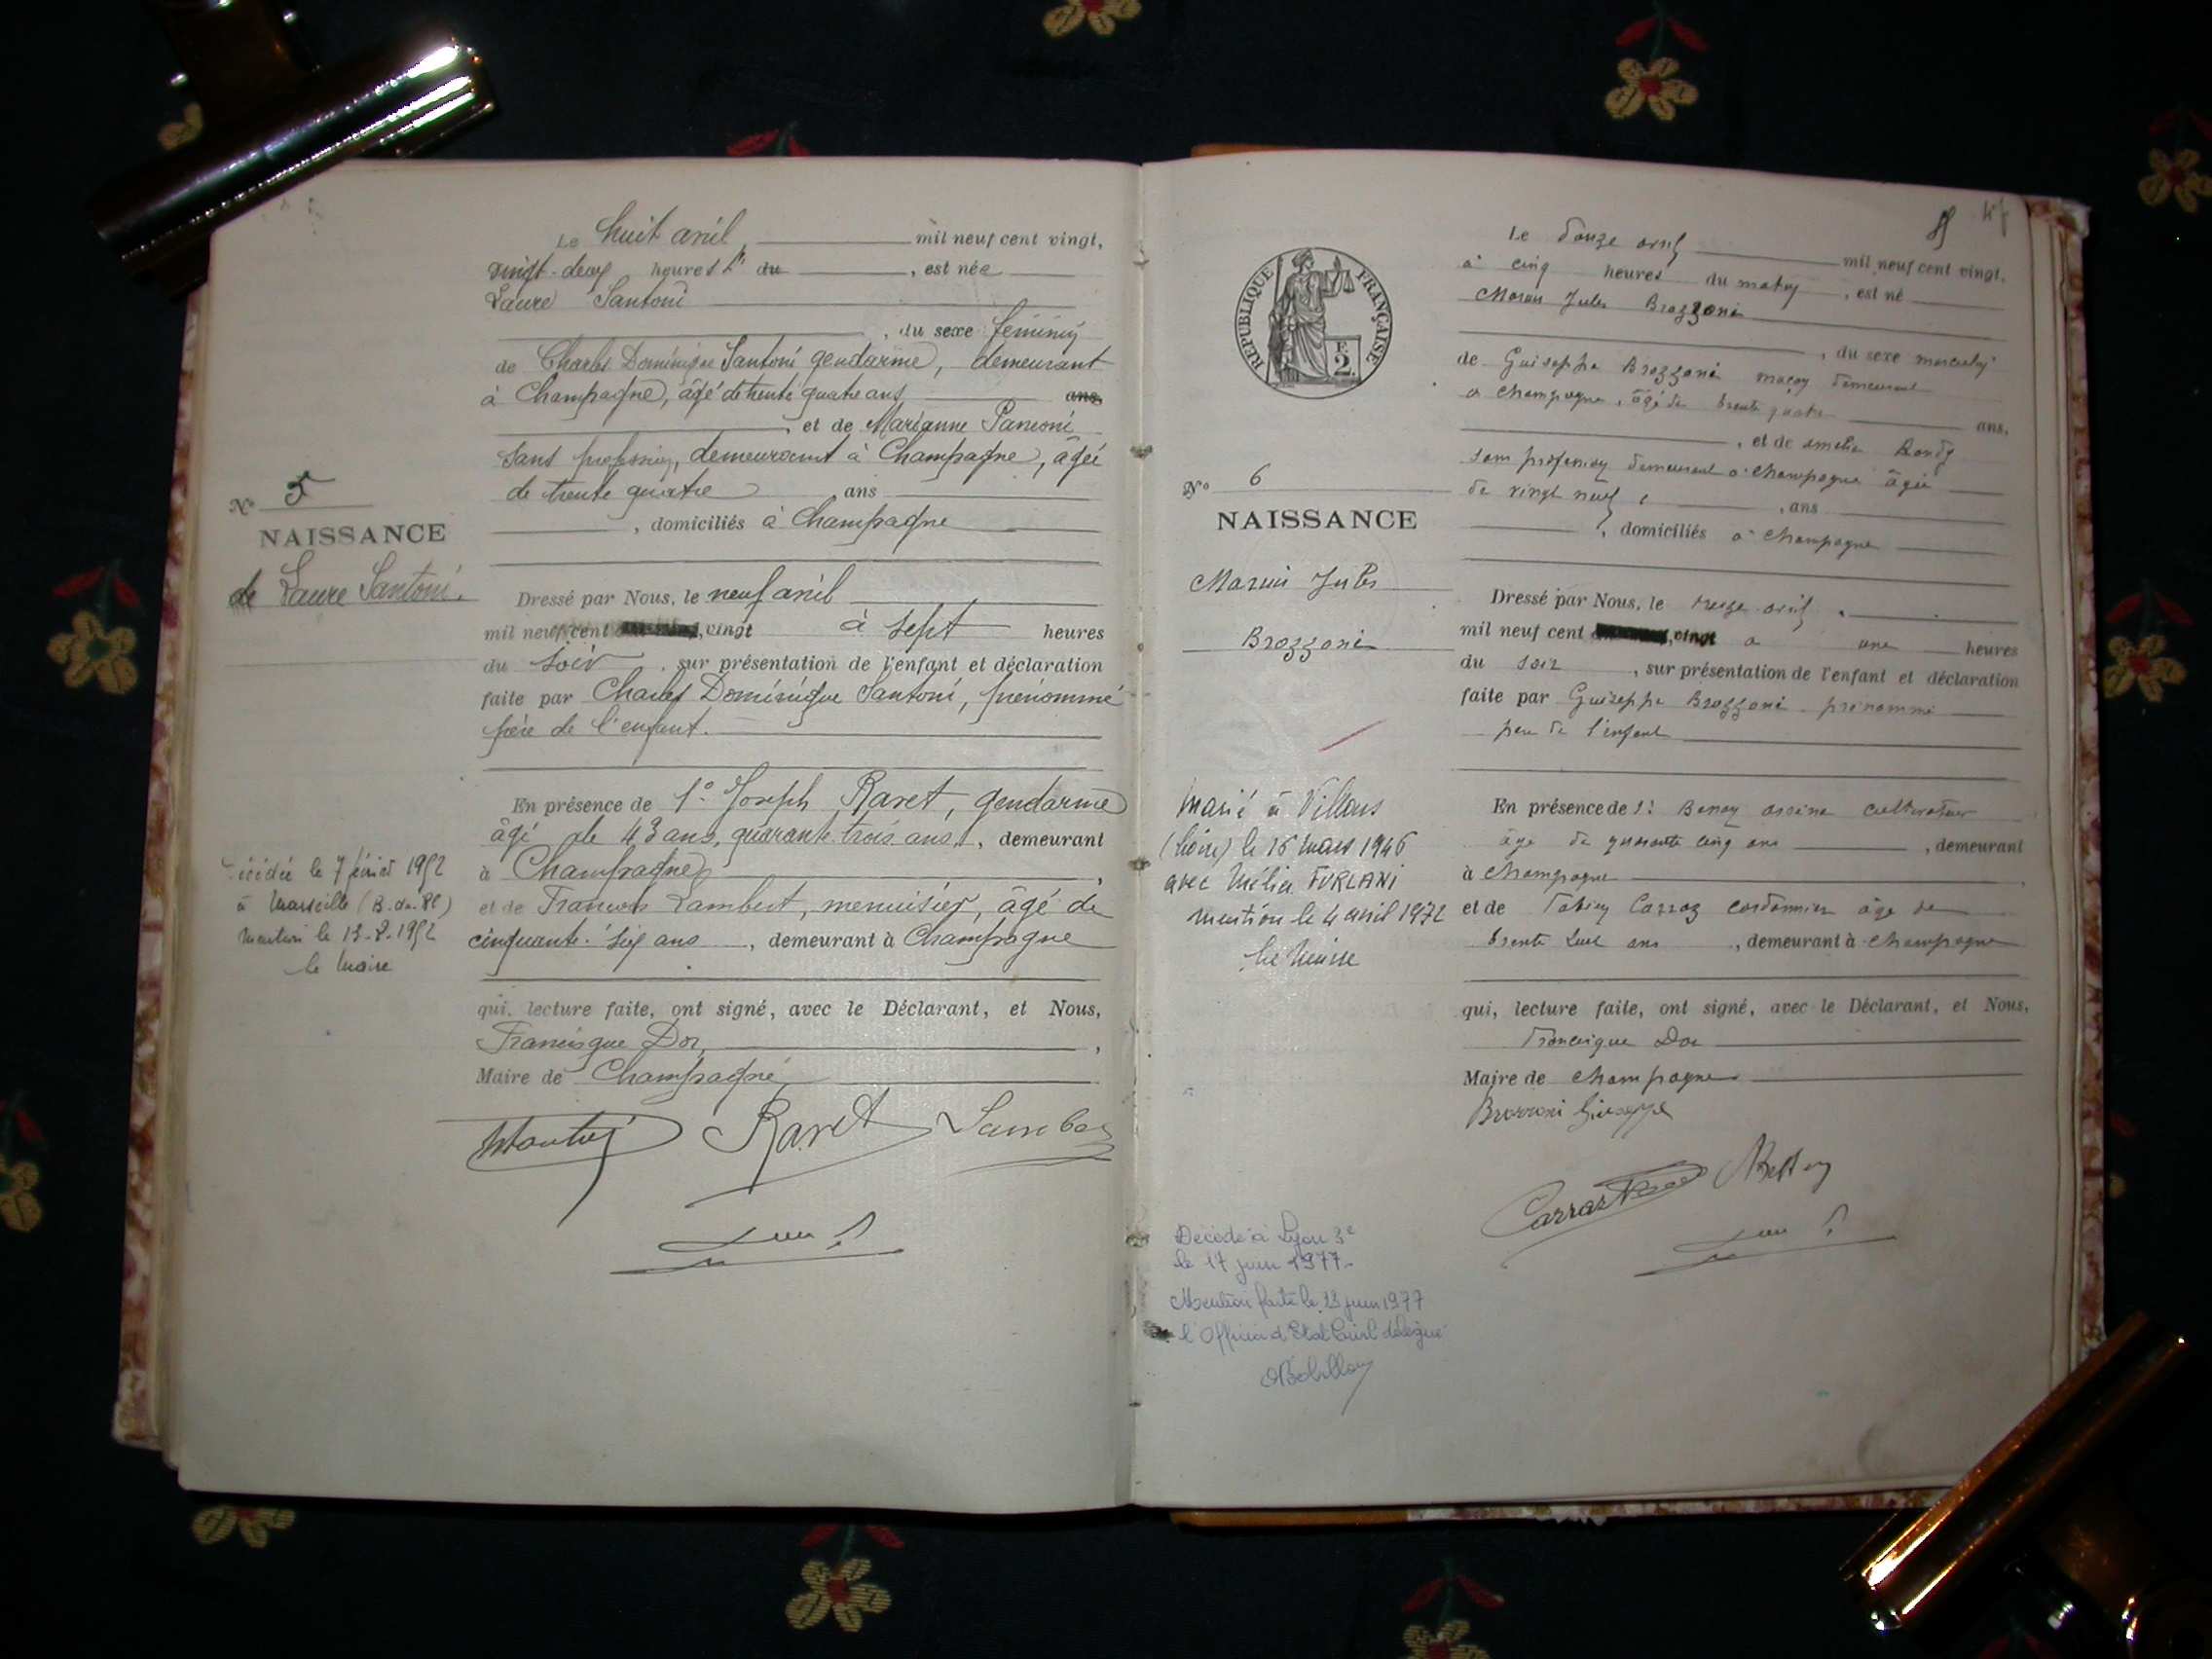 Le huit avril, mil neuf cent vingt,
vingt-deux heures du , est née
Laure Santoni
, du sexe féminin
de Charles Dominique Santoni gendarme, demeurant
à Champagne, âgé de trente quatre ans ans
, et de Marianne
sans profession, demeurant à Champagne, âgée
de trente quatre ans
, domiciliés à Champagne
N° 5
NAISSANCE
de Laure Santoni.
Dressé par Nous, le neuf avril
mil neuf cent , vingt à sept heures
du soir , sur présentation de l'enfant et déclaration
faite par Charles Dominique Santoni, prénommé
père de l'enfant.
En présence de 1° Joseph Ravet, gendarme
âgé de 43 ans, quarante trois ans, demeurant
à Champagne,
et de François Lambert, menuisier, âgé de
cinquante-six ans , demeurant à Champagne
Décédée le 7 février 1952
à Marseille (B.-du-Rh)
Mention le 13-2-1952
le Maire
qui, lecture faite, ont signé, avec le Déclarant, et Nous,
Francisque Dor,
Maire de Champagne
Santoni Ravet Lambert
Le douze avril mil neuf cent vingt,
à cinq heures du matin , est né
Marius Jules Brozzoni
, du sexe masculin
de Guiseppe Brozzoni maçon demeurant
à Champagne, âgé de trente quatre ans,
, et de Amélie
sans profession demeurant à Champagne âgée
de vingt neuf , ans
, domiciliés à Champagne
RÉPUBLIQUE FRANÇAISE
F.
2.
N° 6
NAISSANCE
Marius Jules
Brozzoni
Dressé par Nous, le treize avril
mil neuf cent , vingt à une heures
du soir , sur présentation de l'enfant et déclaration
faite par Guiseppe Brozzoni prénommé
père de l'enfant
En présence de 1° cultivateur
âgé de quarante cinq ans , demeurant
à Champagne
et de Fabien Carraz cordonnier âgé de
trente ans , demeurant à Champagne
Marié à Villars
(Loire) le 16 mars 1946
avec Mélia FURLANI
mention le 4 avril 1972
Le Maire
qui, lecture faite, ont signé, avec le Déclarant, et Nous,
Francisque Dor
Maire de Champagne
Brozzoni Giuseppe
Carraz
Décédé à Lyon 3e
le 17 juin 1977.
Mention faite le 23 juin 1977
l'Officier d'Etat Civil délégué